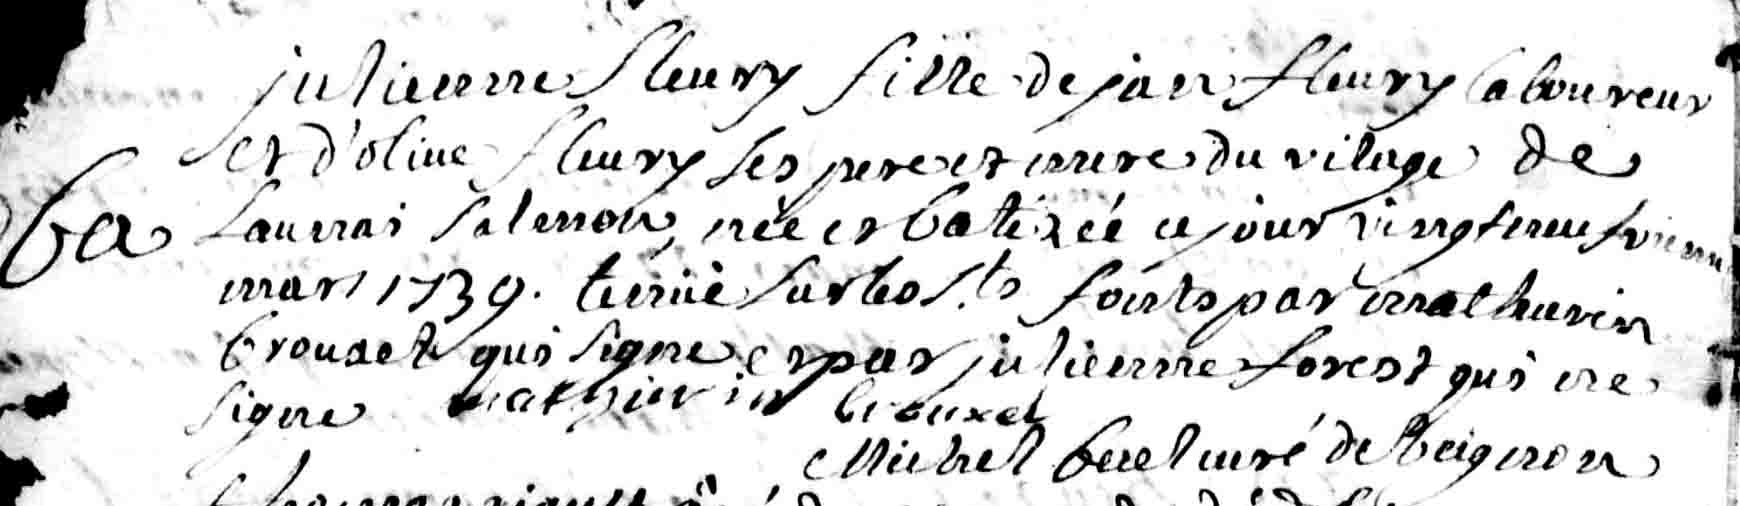 julienne fleury fille de jan fleury laboureur
et d'olive fleury ses pere et mere du vilage de
Ba launai salemon, née et batizée ce jour vingt neufvieme
mars 1739. tenüe sur les st. fonts par mathurin
brouxel qui signe et par julienne forest qui ne
signe mathurin brouxel
Michel curé de beignon